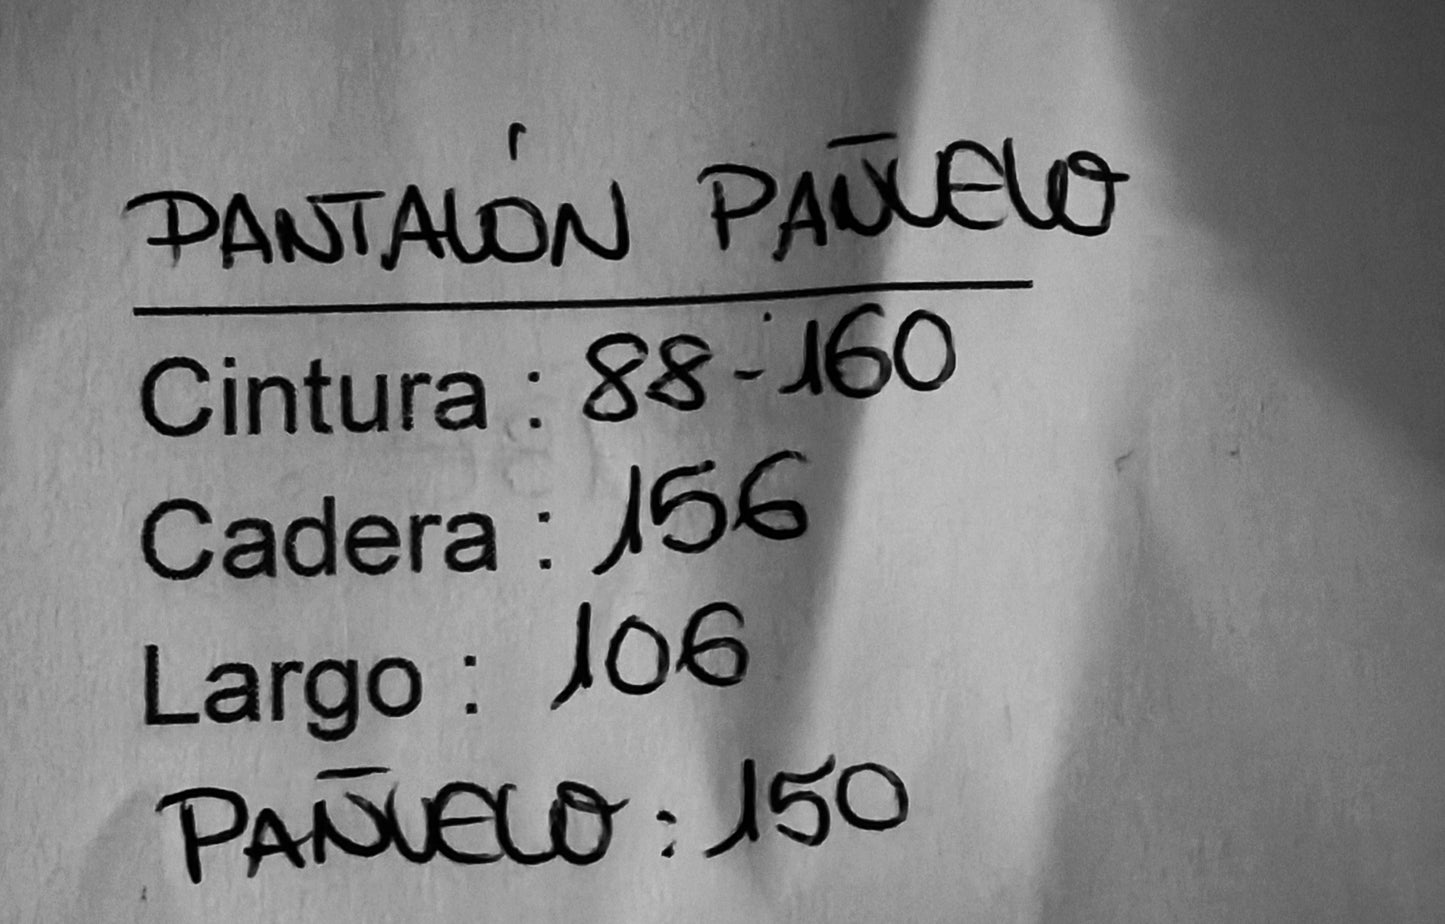 PANTALÓN PAÑUELO
Cintura : 88-160
Cadera : 156
Largo : 106
PAÑUELO : 150